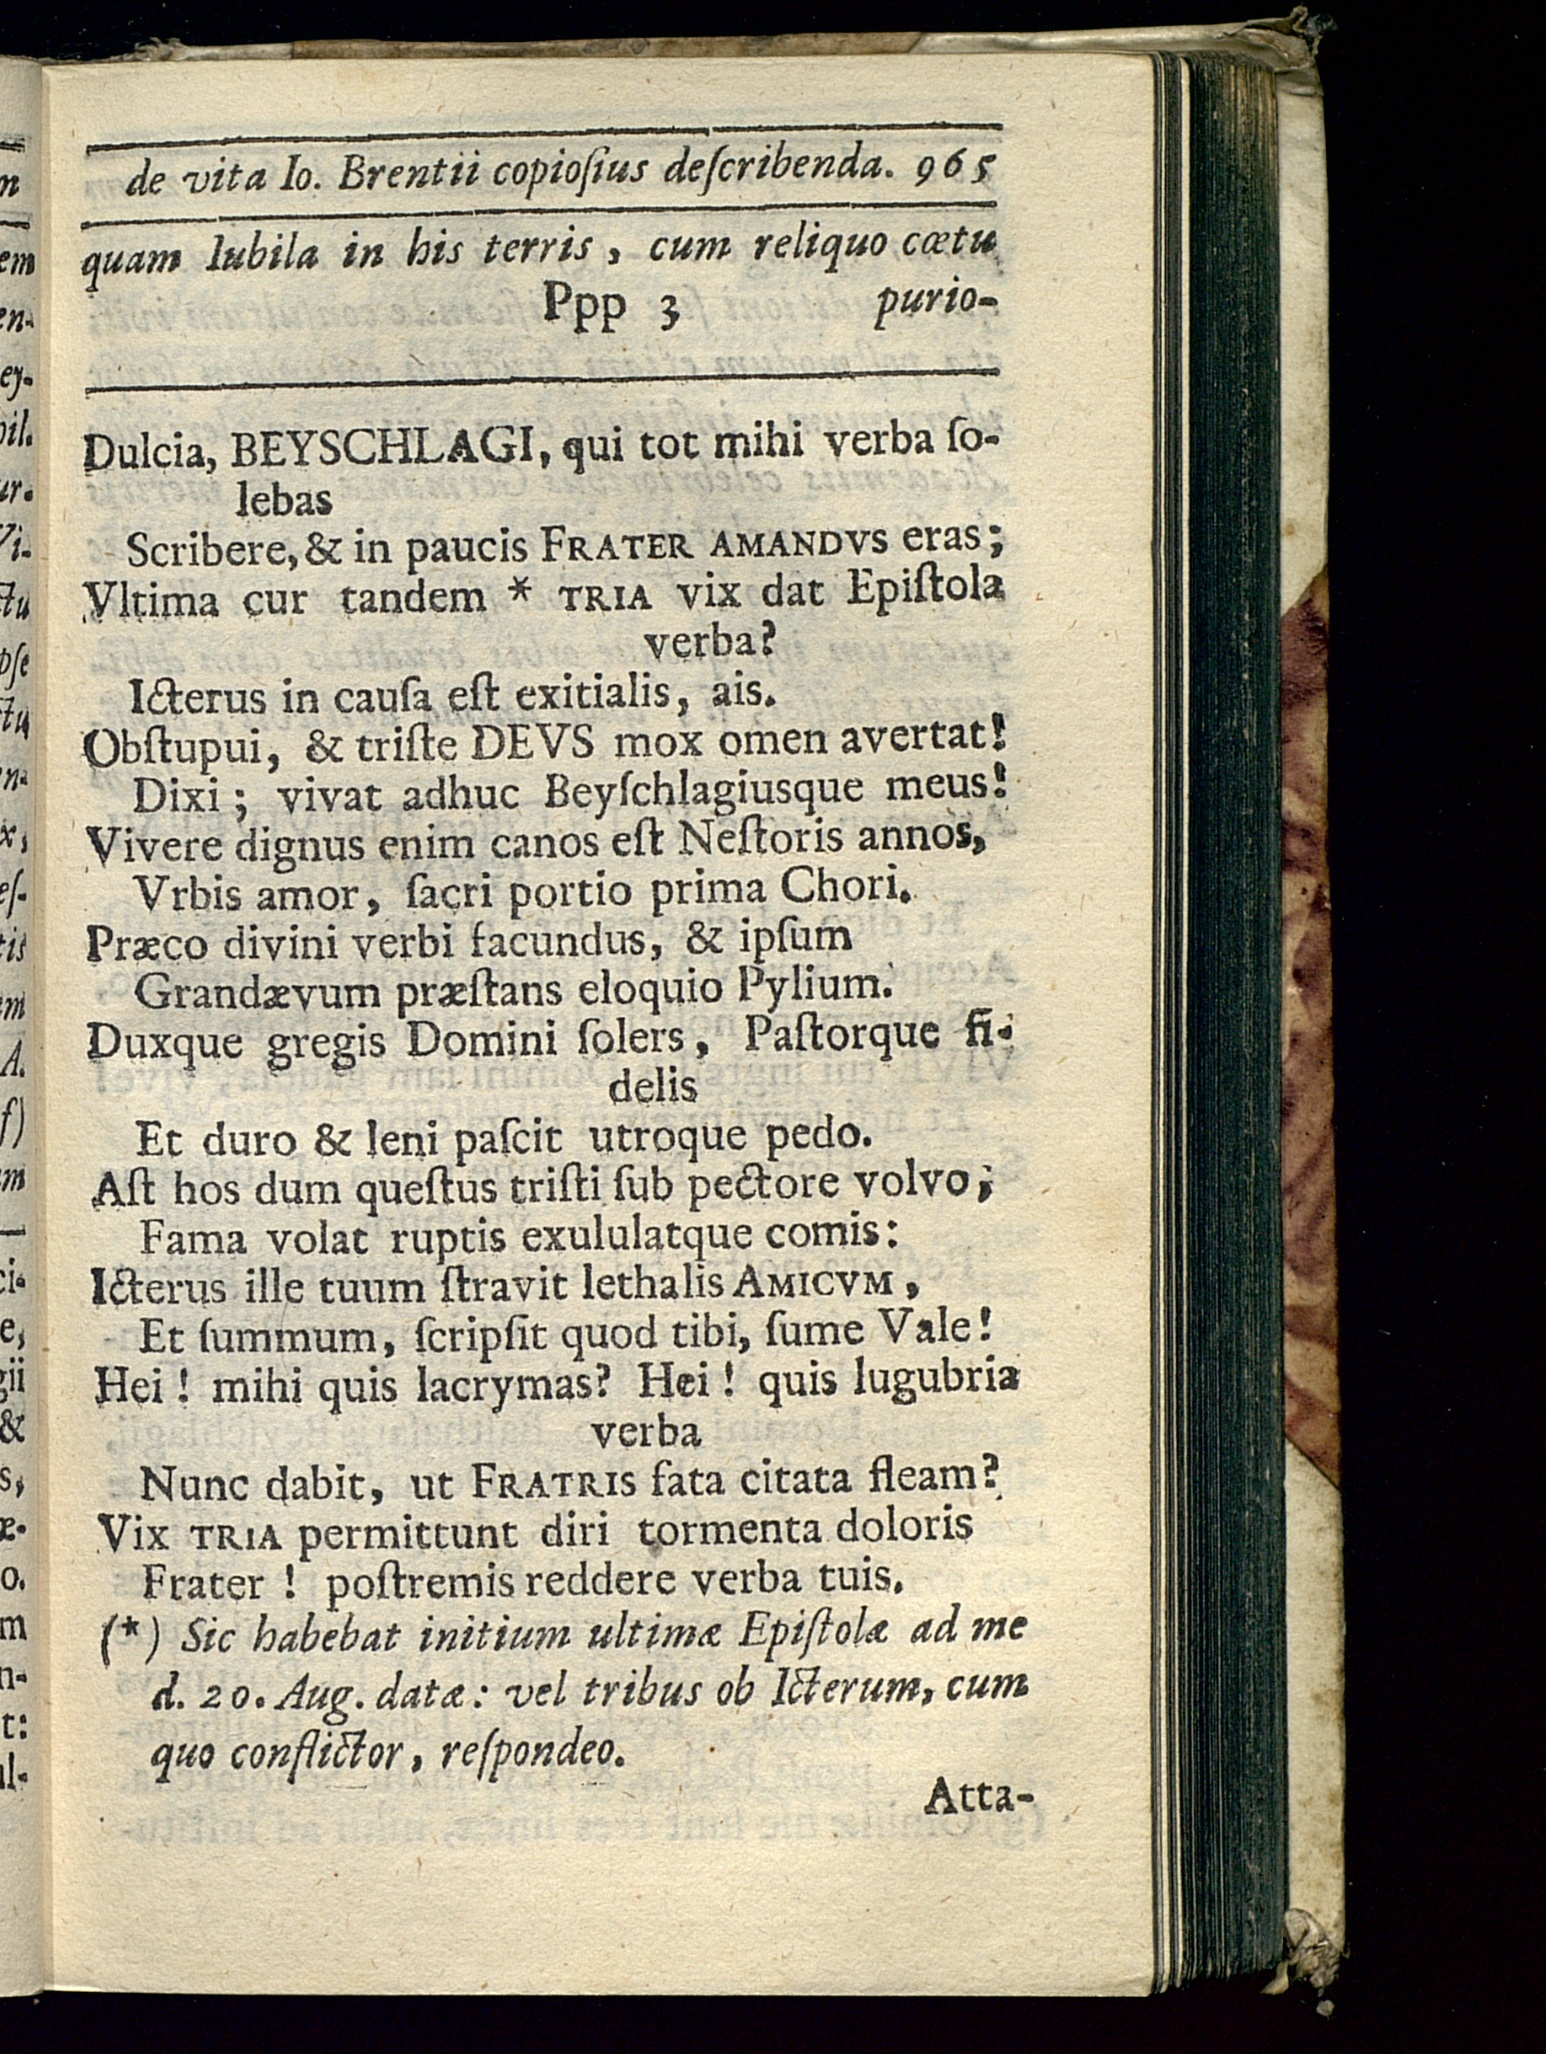 de vita Io. Brentii copioſius deſcribenda. 965
quam Iubila in his terris, cum reliquo cœtu
Ppp 3 purio-
Dulcia, BEYSCHLAGI, qui tot mihi verba ſo-
lebas
Scribere, & in paucis FRATER AMANDVS eras;
Vltima cur tandem * TRIA vix dat Epiſtola
verba?
Icterus in cauſa eſt exitialis, ais.
Obſtupui, & triſte DEVS mox omen avertat!
Dixi; vivat adhuc Beyſchlagiusque meus!
Vivere dignus enim canos eſt Neſtoris annos,
Vrbis amor, ſacri portio prima Chori.
Præco divini verbi facundus, & ipſum
Grandævum præſtans eloquio Pylium.
Duxque gregis Domini ſolers, Paſtorque fi-
delis
Et duro & leni paſcit utroque pedo.
Aſt hos dum queſtus triſti ſub pectore volvo;
Fama volat ruptis exululatque comis:
Icterus ille tuum ſtravit lethalis AMICVM,
Et ſummum, ſcripſit quod tibi, ſume Vale!
Hei! mihi quis lacrymas? Hei! quis lugubria
verba
Nunc dabit, ut FRATRIS fata citata fleam?
Vix TRIA permittunt diri tormenta doloris
Frater! poſtremis reddere verba tuis.
(*) Sic habebat initium ultimæ Epiſtolæ ad me
d. 20. Aug. datæ: vel tribus ob Icterum, cum
quo conflictor, reſpondeo.
Atta-